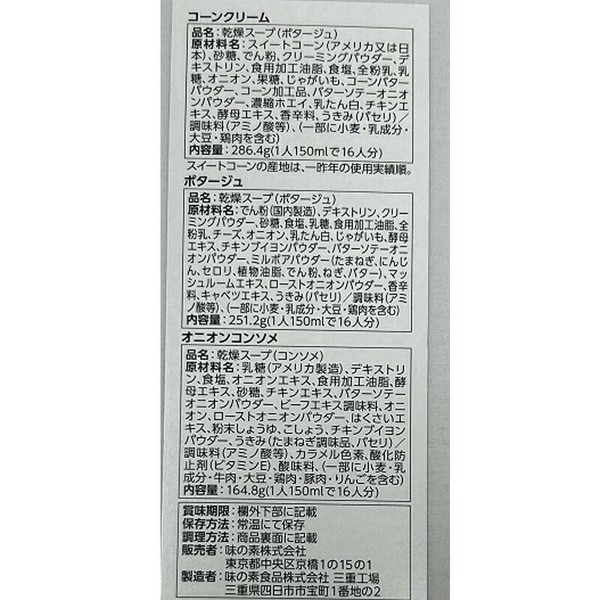 コーンクリーム
品名：乾燥スープ(ポタージュ)
原材料名：スイートコーン(アメリカ又は日
本)、砂糖、でん粉、クリーミングパウダー、デ
キストリン、食用加工油脂、食塩、全粉乳、乳
糖、オニオン、果糖、じゃがいも、コーンバター
パウダー、コーン加工品、バターソテーオニオ
ンパウダー、濃縮ホエイ、乳たん白、チキンエキ
ス、酵母エキス、香辛料、うきみ(パセリ)／
調味料(アミノ酸等)、(一部に小麦・乳成分・
大豆・鶏肉を含む)
内容量：286.4g(1人150mlで16人分)
スイートコーンの産地は、一昨年の使用実績順。
ポタージュ
品名：乾燥スープ(ポタージュ)
原材料名：でん粉(国内製造)、デキストリン、クリー
ミングパウダー、砂糖、食塩、乳糖、食用加工油脂、全
粉乳、チーズ、オニオン、乳たん白、じゃがいも、酵母
エキス、チキンブイヨンパウダー、バターソテーオニ
オンパウダー、ミルポアパウダー(たまねぎ、にんじ
ん、セロリ、植物油脂、でん粉、ねぎ、バター)、マッ
シュルームエキス、ローストオニオンパウダー、香辛
料、キャベツエキス、うきみ(パセリ)／調味料(アミ
ノ酸等)、(一部に小麦・乳成分・大豆・鶏肉を含む)
内容量：251.2g(1人150mlで16人分)
オニオンコンソメ
品名：乾燥スープ(コンソメ)
原材料名：乳糖(アメリカ製造)、デキストリ
ン、食塩、オニオンエキス、食用加工油脂、酵
母エキス、砂糖、チキンエキス、バターソテー
オニオンパウダー、ビーフエキス調味料、オニ
オン、ローストオニオンパウダー、はくさいエ
キス、粉末しょうゆ、こしょう、チキンブイヨン
パウダー、うきみ(たまねぎ調味品、パセリ)／
調味料(アミノ酸等)、カラメル色素、酸化防
止剤(ビタミンE)、酸味料、(一部に小麦・乳
成分・牛肉・大豆・鶏肉・豚肉・りんごを含む)
内容量：164.8g(1人150mlで16人分)
賞味期限：欄外下部に記載
保存方法：常温にて保存
調理方法：商品裏面に記載
販売者：味の素株式会社
東京都中央区京橋1の15の1
製造者：味の素食品株式会社 三重工場
三重県四日市市宝町1番地2